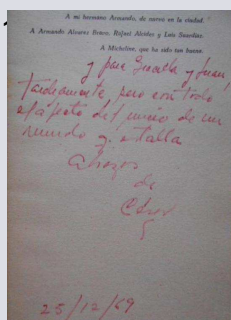 A mi hermano Armando, de nuevo en la ciudad.
A Armando Alvarez Bravo, Rafael Alcides y Luis Suardíaz.
A Micheline, que ha sido tan buena.
y para Graciella y Juan,
tardíamente, pero con todo
el afecto del inicio de un
mundo q. estalla
abrazos
de
César
25/12/69